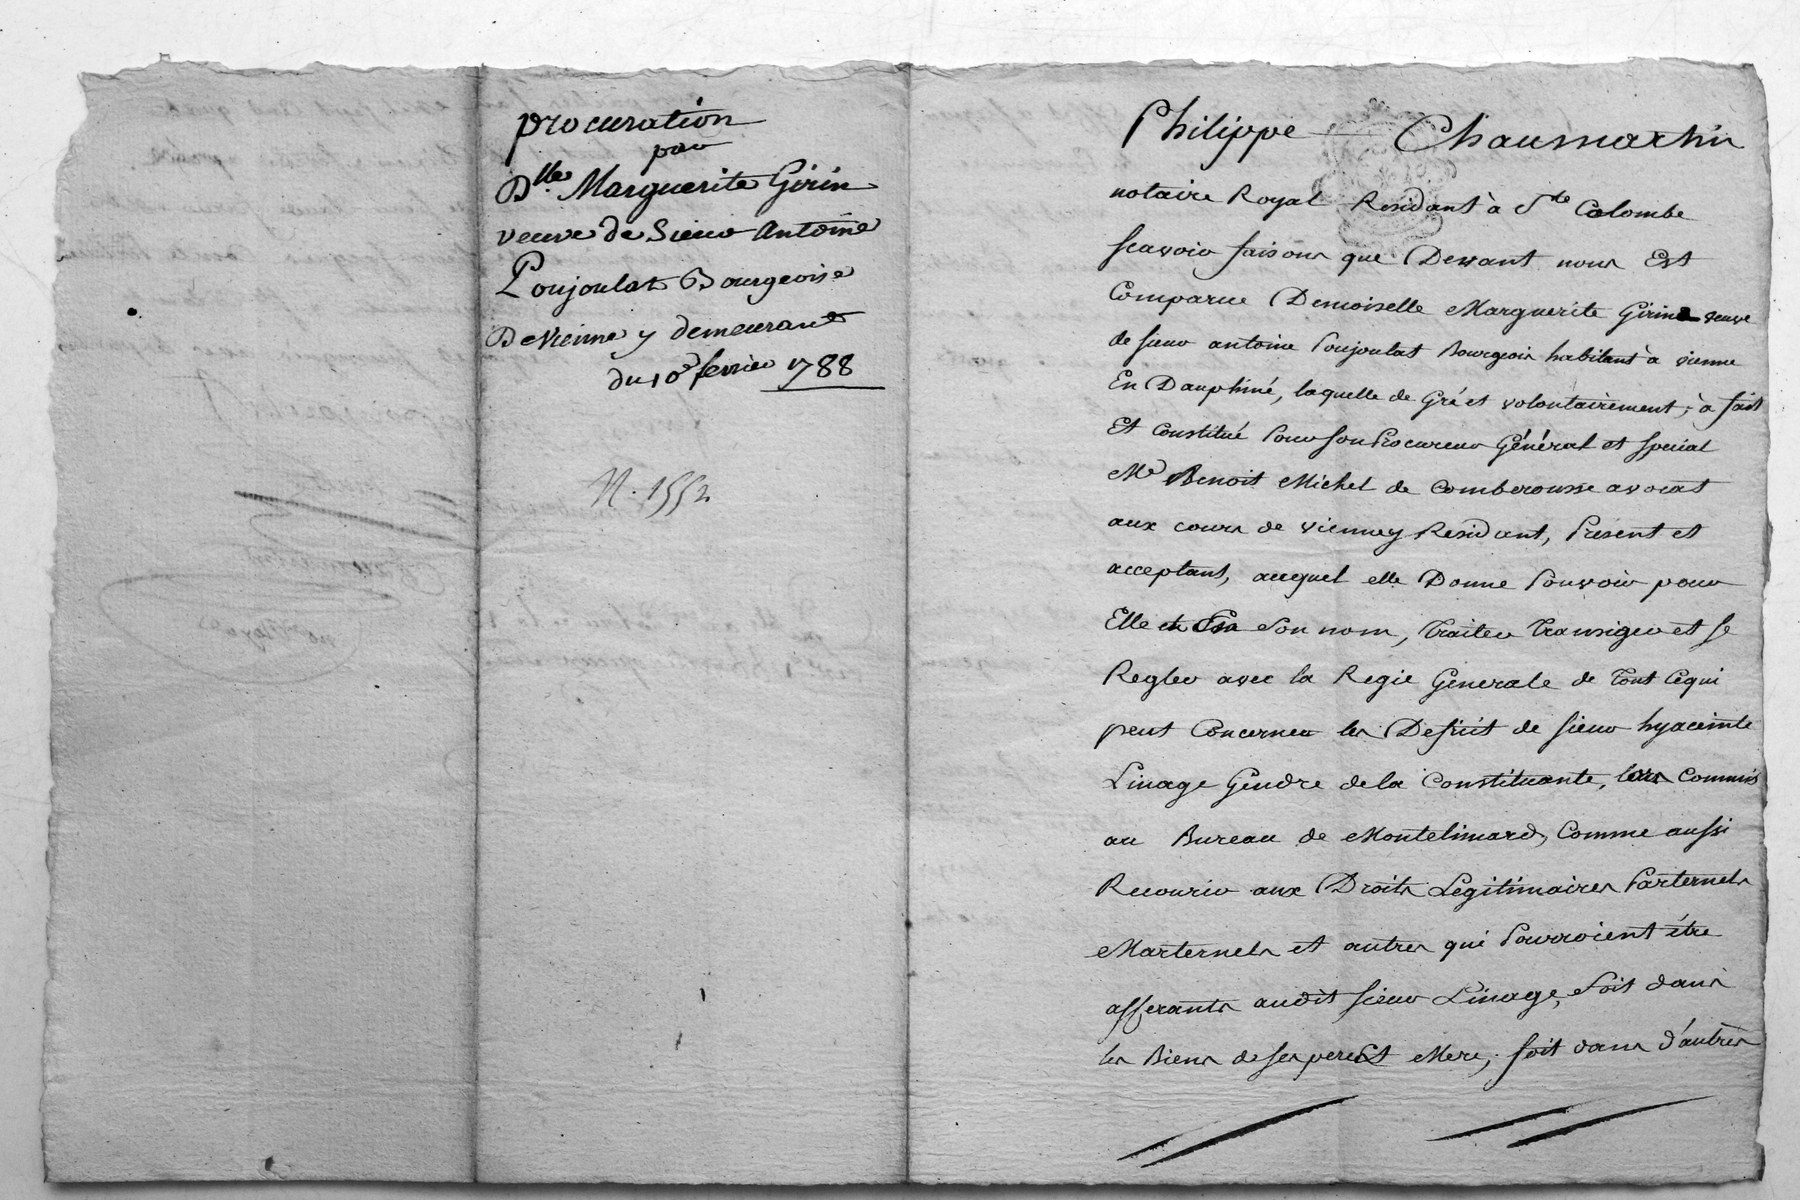 procuration
par
Dlle Marguerite Girin
veuve de Sieur Antoine
Poujoulat Bourgeoise
De Vienne y demeurant
du 10e fevrier 1788
N. 1552
Philippe Chaumartin
notaire Royal Residant à Ste Colombe
scavoir faisons que Devant nous Est
Comparue Demoiselle Marguerite Girin veuve
de sieur antoine Poujoulat Bourgeois habitant à vienne
En Dauphiné, laquelle de Gré et volontairement, à fait
Et constitué Pour son Procureur Général et special
Me Benoit Michel de Comberousse avocat
aux cours de vienne y Residant, Présent et
acceptant, auquel elle Donne Pouvoir pour
Elle et Son nom, Traiter Transiger et se
Regler avec la Regie Generale de Tout Cequi
peut Concerner les Deficit de sieur hyaceinte
Linage Gendre de la Constituante, lors Commis
au Bureau de Montelimard, Comme aussi
Recourir aux Droits Legitimaires Parternels
Marternels et autres qui Pourroient être
afferants audit sieur Linage, Soit dans
les Biens de ses pere Et Mere, soit dans d'autres